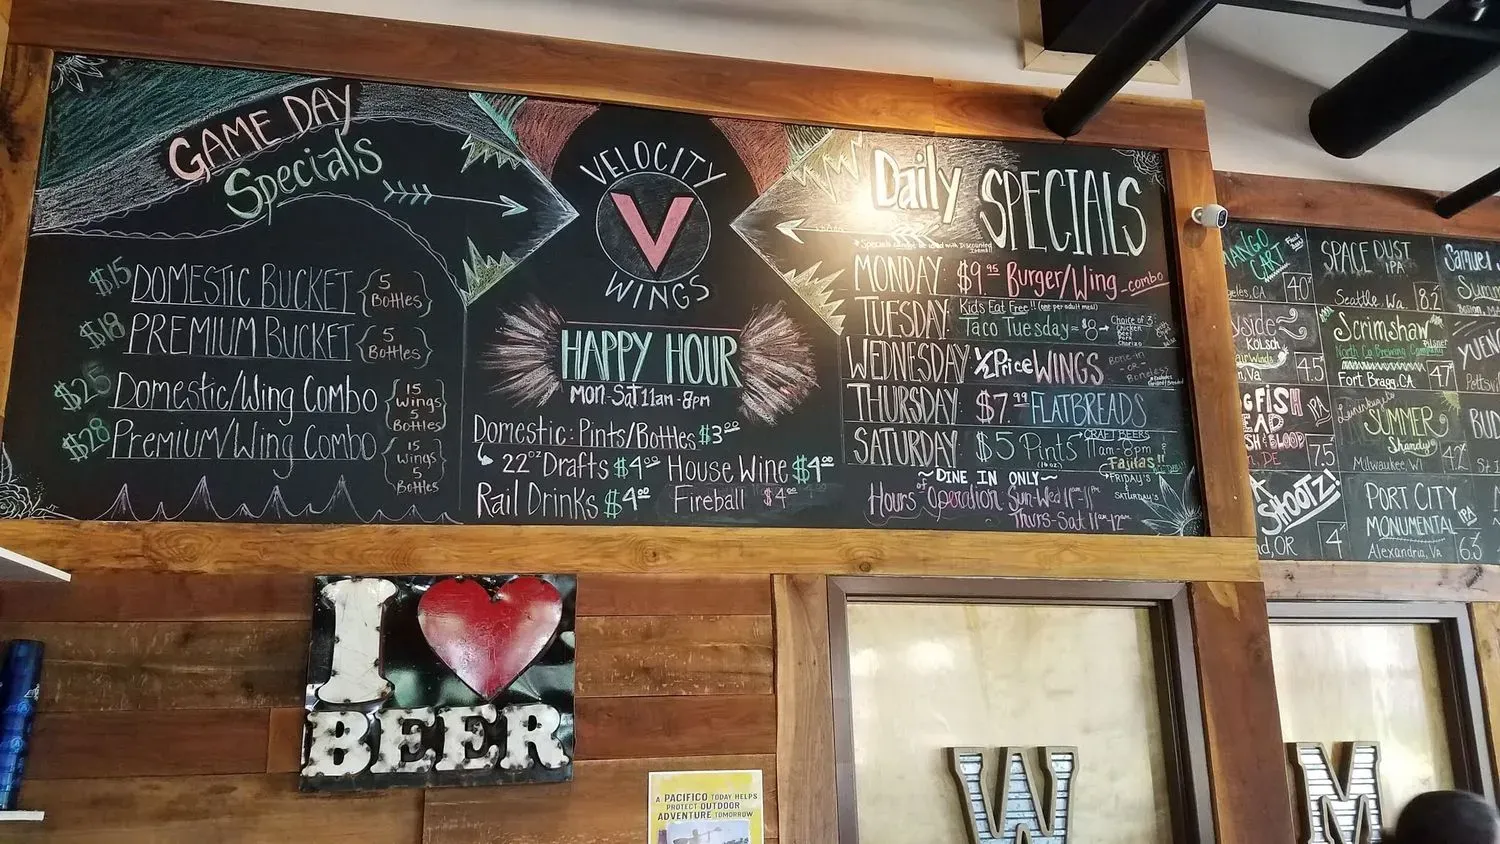 GAME DAY
Specials
$15 DOMESTIC BUCKET {5 Bottles}
$18 PREMIUM BUCKET {5 Bottles}
$25 Domestic/Wing Combo {15 wings 5 Bottles}
$28 Premium/Wing Combo {15 wings 5 Bottles}
VELOCITY
V
WINGS
HAPPY HOUR
MON-SAT 11am-8pm
Domestic: Pints/Bottles $3.00
22oz Drafts $4.00 House Wine $4.00
Rail Drinks $4.00 Fireball $4.00
Daily SPECIALS
MONDAY: $9.95 Burger/Wing combo
TUESDAY: Kids Eat Free!! (one per adult meal)
Taco Tuesday $8 → Choice of 3:
Chicken
Beef
Pork
Chorizo
WEDNESDAY ½ Price WINGS Bone-in
-or-
Boneless
THURSDAY $7.99 FLATBREADS
SATURDAY $5 Pints CRAFT BEERS 11am-8pm
(16oz)
Fajitas!!
FRIDAY'S
SATURDAY'S
~DINE IN ONLY~
Hours of Operation Sun-Wed 11am-11pm
Thurs-Sat 11am-12am
MANGO
CART
CA 4.0
SPACE DUST
IPA
Seattle, Wa 8.2
Samuel
Summ
KÖLSCH
Va 4.5
Scrimshaw
Pilsner
North Co Brewing Company
Fort Bragg, CA 4.7
YUEN
FISH
EAD
IPA
BLOOD
DE 7.5
Leinenkugel's
SUMMER
Shandy
Milwaukee, WI 4.2
BUD
SHOOTZ!
OR 4
PORT CITY
MONUMENTAL IPA
Alexandria, Va 6.3
I
BEER
A PACIFICO TODAY HELPS
PROTECT OUTDOOR
ADVENTURE TOMORROW
W
M